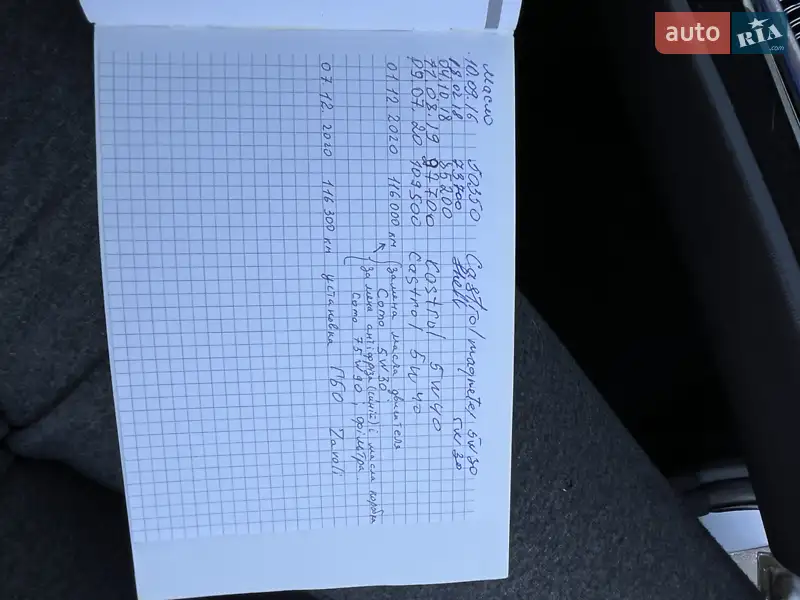 Масло
10.09.16 Castrol magnatec 5W30
18.02.18 73700 Shell 5W30
04.10.18 85200
11.08.19 97700 Kastrol 5W40
09.07.20 109500 Castrol 5W40
01.12.2020 116000 км замена масла двигателя
Сомо 5W30
замена антіфрза (синій) і масла коробки
Сомо 75W90, фільтра
07.12.2020 116300 км установка ГБО Zavoli
auto RIA .com